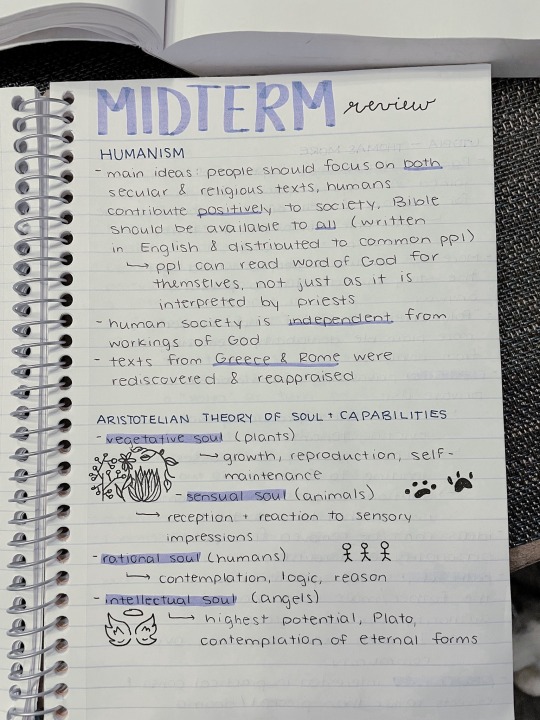 MIDTERM review
HUMANISM
- main ideas: people should focus on both
secular & religious texts, humans
contribute positively to society, Bible
should be available to all (written
in English & distributed to common ppl)
↳ ppl can read word of God for
themselves, not just as it is
interpreted by priests
- human society is independent from
workings of God
- texts from Greece & Rome were
rediscovered & reappraised
ARISTOTELIAN THEORY OF SOUL + CAPABILITIES
- vegetative soul (plants)
↳ growth, reproduction, self-
maintenance
- sensual soul (animals)
→ reception + reaction to sensory
impressions
- rational soul (humans)
↳ contemplation, logic, reason
- intellectual soul (angels)
↳ highest potential, Plato,
contemplation of eternal forms